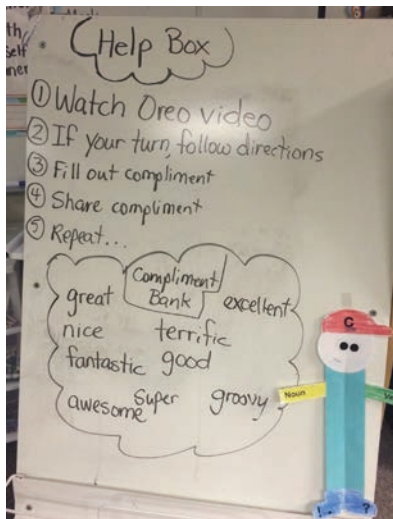 Help Box
① Watch Oreo video
② If your turn, follow directions
③ Fill out compliment
④ Share compliment
⑤ Repeat...
Compliment
Bank
great excellent
nice terrific
fantastic good
awesome super groovy
C
Noun
!.. ?